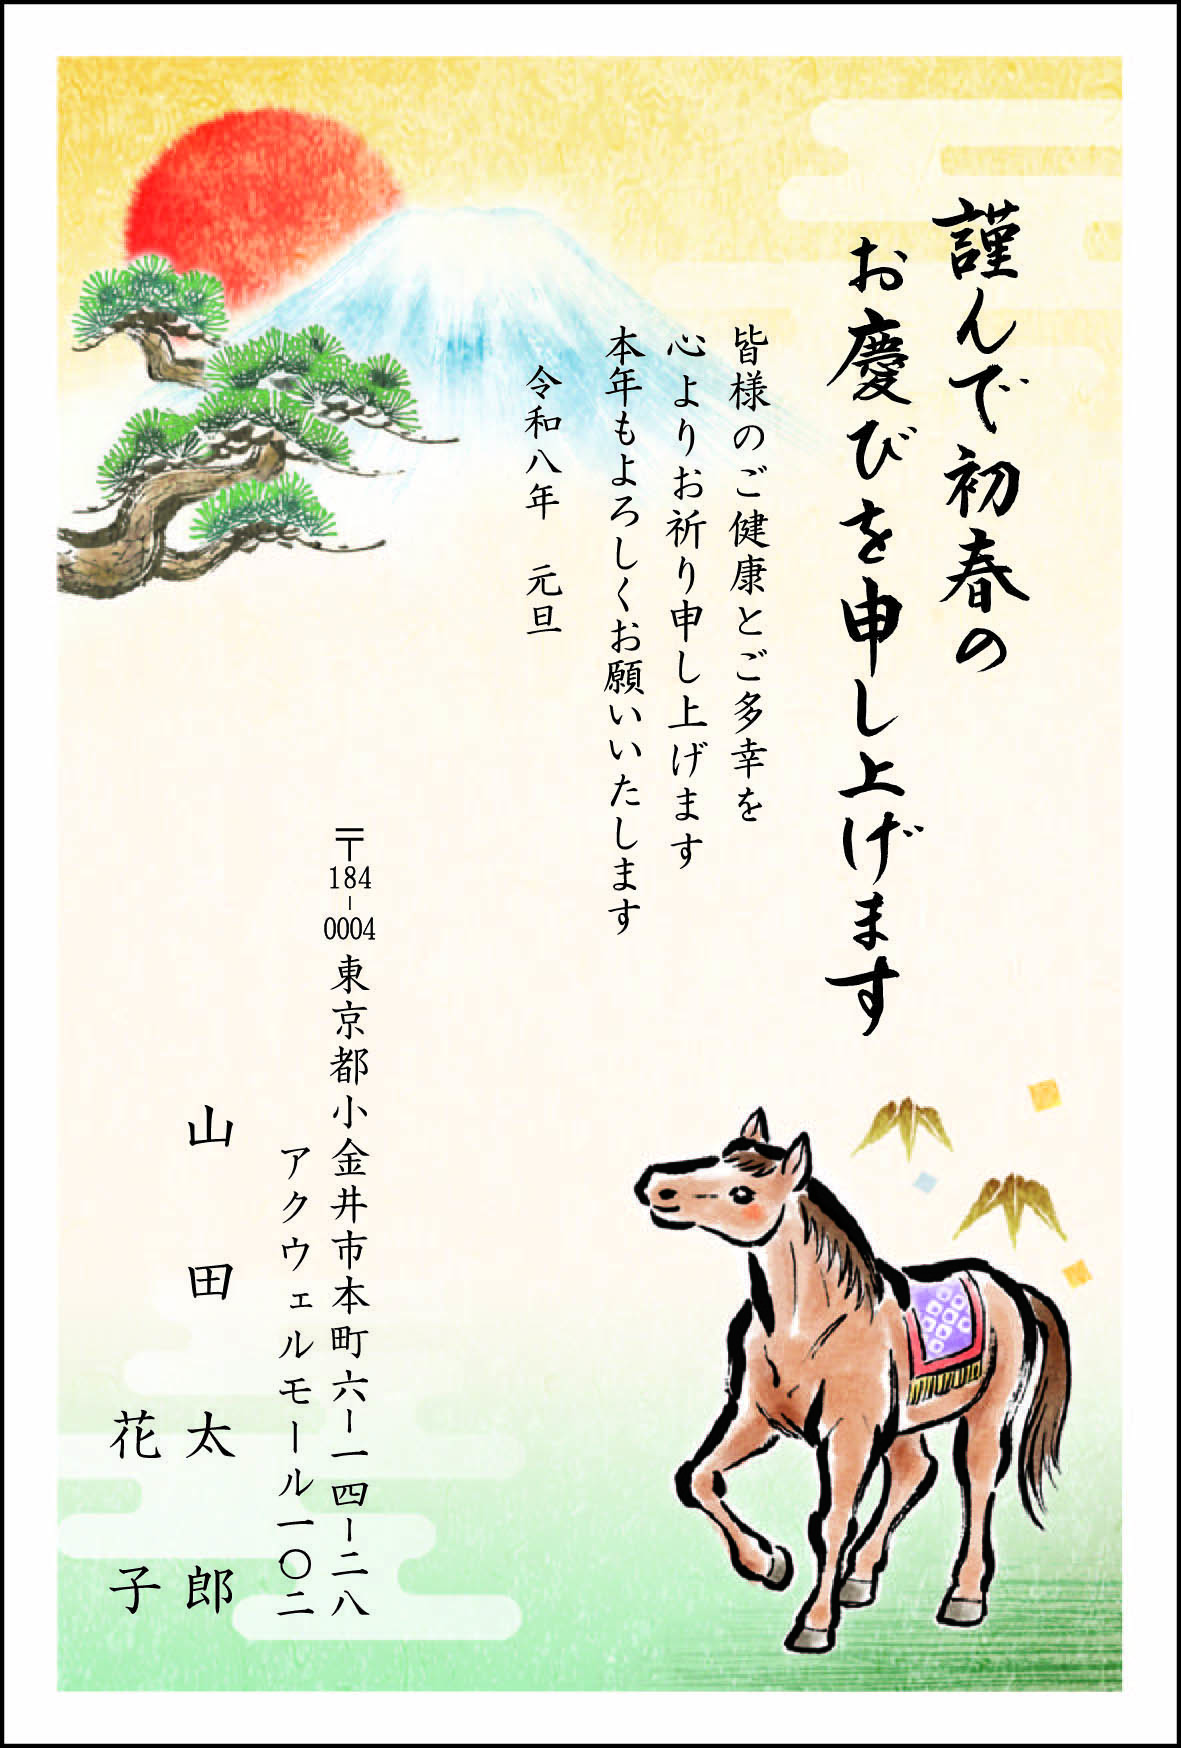 謹んで初春の
お慶びを申し上げます
皆様のご健康とご多幸を
心よりお祈り申し上げます
本年もよろしくお願いいたします
令和八年　元旦
〒184-0004 東京都小金井市本町六ー一四ー二八
アクウェルモール一〇二
山田太郎
花子